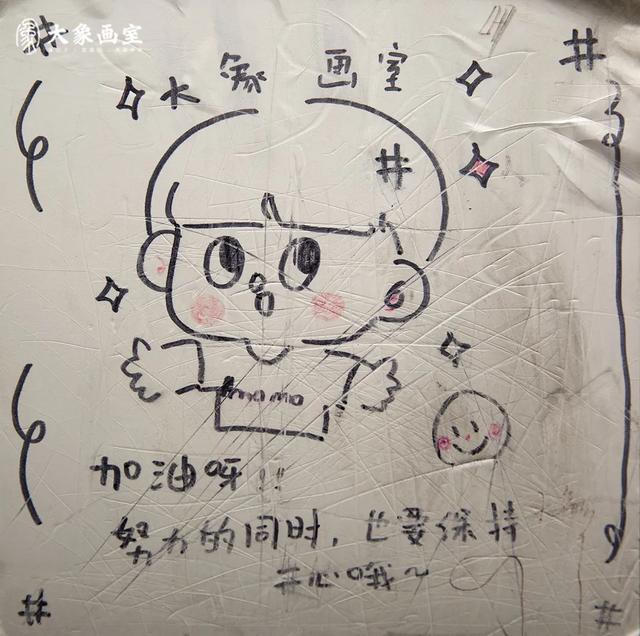 大象画室
大象画室
momo
加油呀!!
努力的同时，也要保持
开心哦~